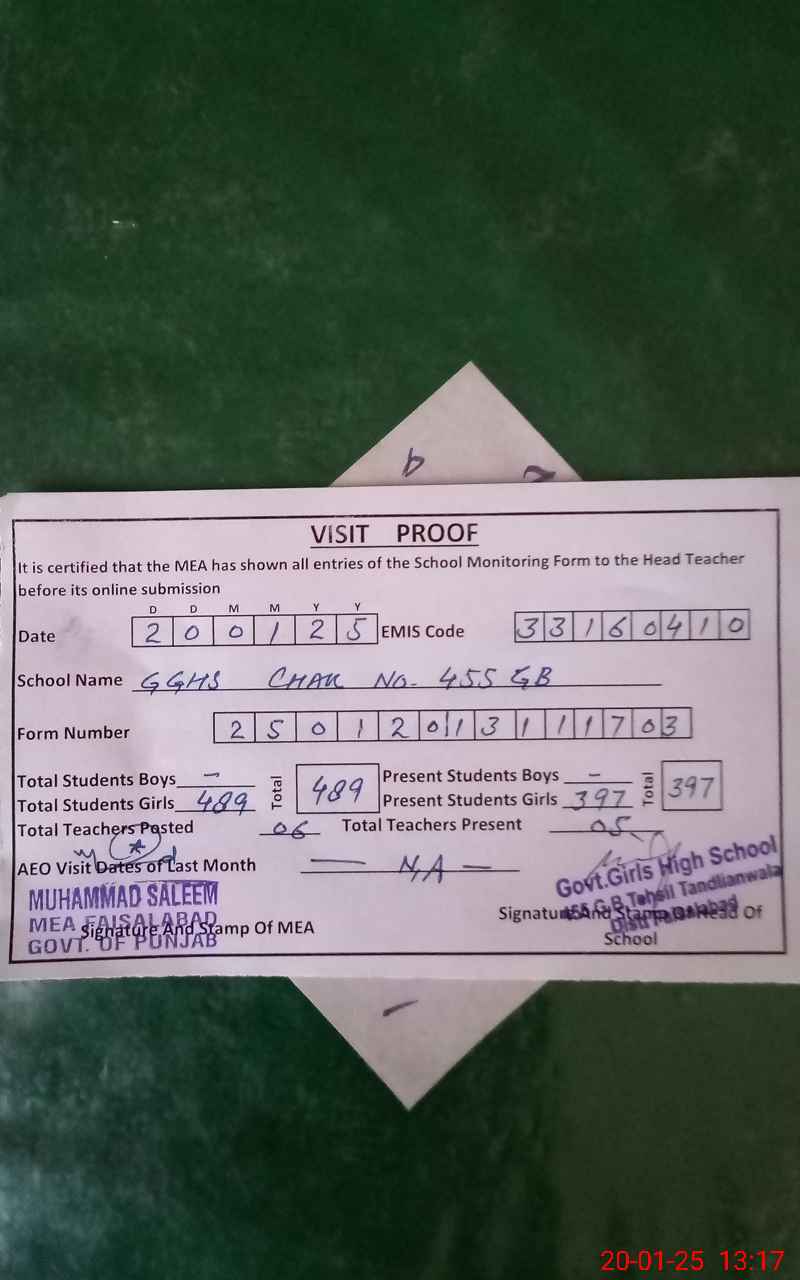 b
VISIT PROOF
It is certified that the MEA has shown all entries of the School Monitoring Form to the Head Teacher
before its online submission
D D M M Y Y
Date 2 0 0 1 2 5 EMIS Code 3 3 1 6 0 4 1 0
School Name GGHS CHAK No. 455 GB
Form Number 2 5 0 1 2 0 1 3 1 1 1 7 0 3
Total Students Boys — Total 489 Present Students Boys — Total 397
Total Students Girls 489 Present Students Girls 397
Total Teachers Posted 06 Total Teachers Present 05
AEO Visit Dates of Last Month — NA —
MUHAMMAD SALEEM
MEA FAISALABAD
GOVT. OF PUNJAB
Signature And Stamp Of MEA
Govt.Girls High School
455 G.B Tehsil Tandlianwala
Distt Faisalabad
Signature And Stamp Of Head Of
School
20-01-25 13:17